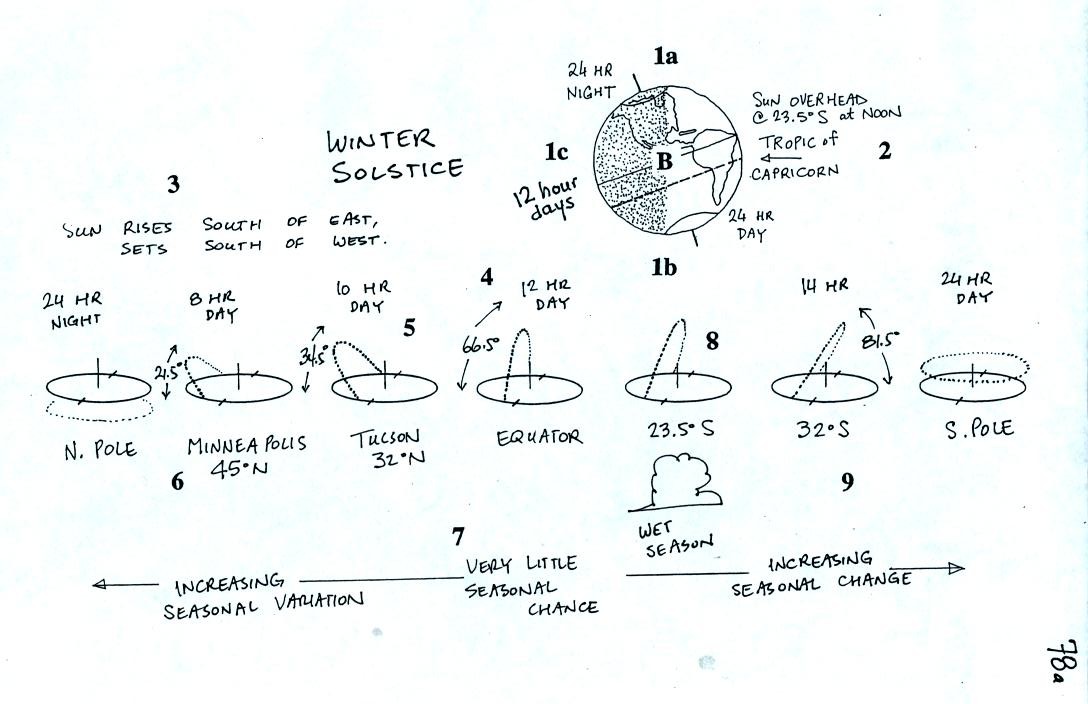 1a
24 HR
NIGHT
SUN OVERHEAD
@ 23.5° S at NOON
TROPIC of
CAPRICORN
2
WINTER
SOLSTICE
1c
B
12 hour
days
24 HR
DAY
1b
3
SUN RISES SOUTH OF EAST,
SETS SOUTH OF WEST.
24 HR
NIGHT
8 HR
DAY
10 HR
DAY
4
12 HR
DAY
14 HR
24 HR
DAY
5
8
21.5°
34.5°
66.5°
81.5°
N. POLE
MINNEAPOLIS
45°N
TUCSON
32°N
EQUATOR
23.5° S
32°S
S. POLE
6
9
WET
SEASON
7
INCREASING
SEASONAL VARIATION
VERY LITTLE
SEASONAL
CHANCE
INCREASING
SEASONAL CHANGE
78a